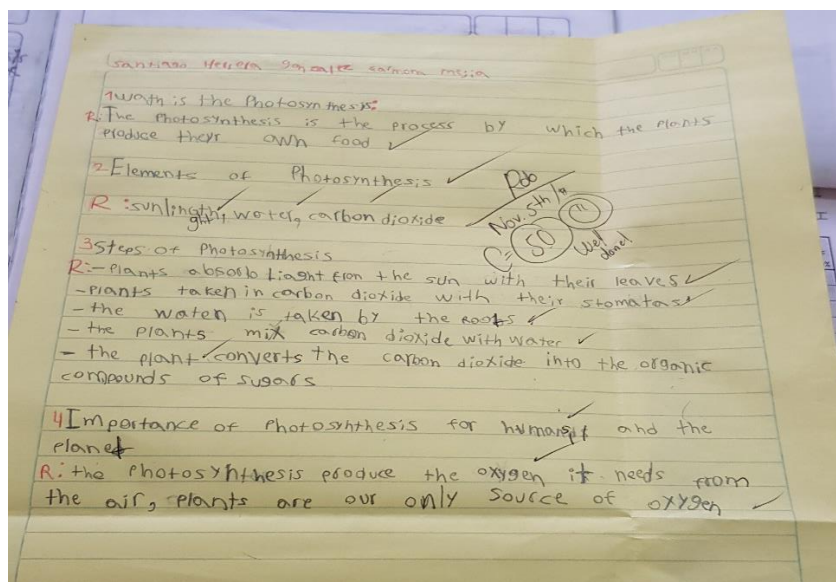 Santiago Herrera Gonzalez
1 Wath is the Photosynthesis:
R: The Photosynthesis is the process by which the plants
produce theyr own food
2 Elements of Photosynthesis
R: sunlingth, water, carbon dioxide
ght
Rdo
Nov. 5th/
C= 50
Well done!
3 Steps of Photosynthesis
R: - Plants absorb Lianht fron the sun with their leaves
- Plants taken in carbon dioxide with their stomatas
- the water is taken by the roots
- the plants mix carbon dioxide with water
- the plant converts the carbon dioxide into the organic
compounds of sugars
4 Importance of Photosynthesis for humans and the
planet
R: the Photosynthesis produce the oxygen it needs from
the air, plants are our only source of oxygen